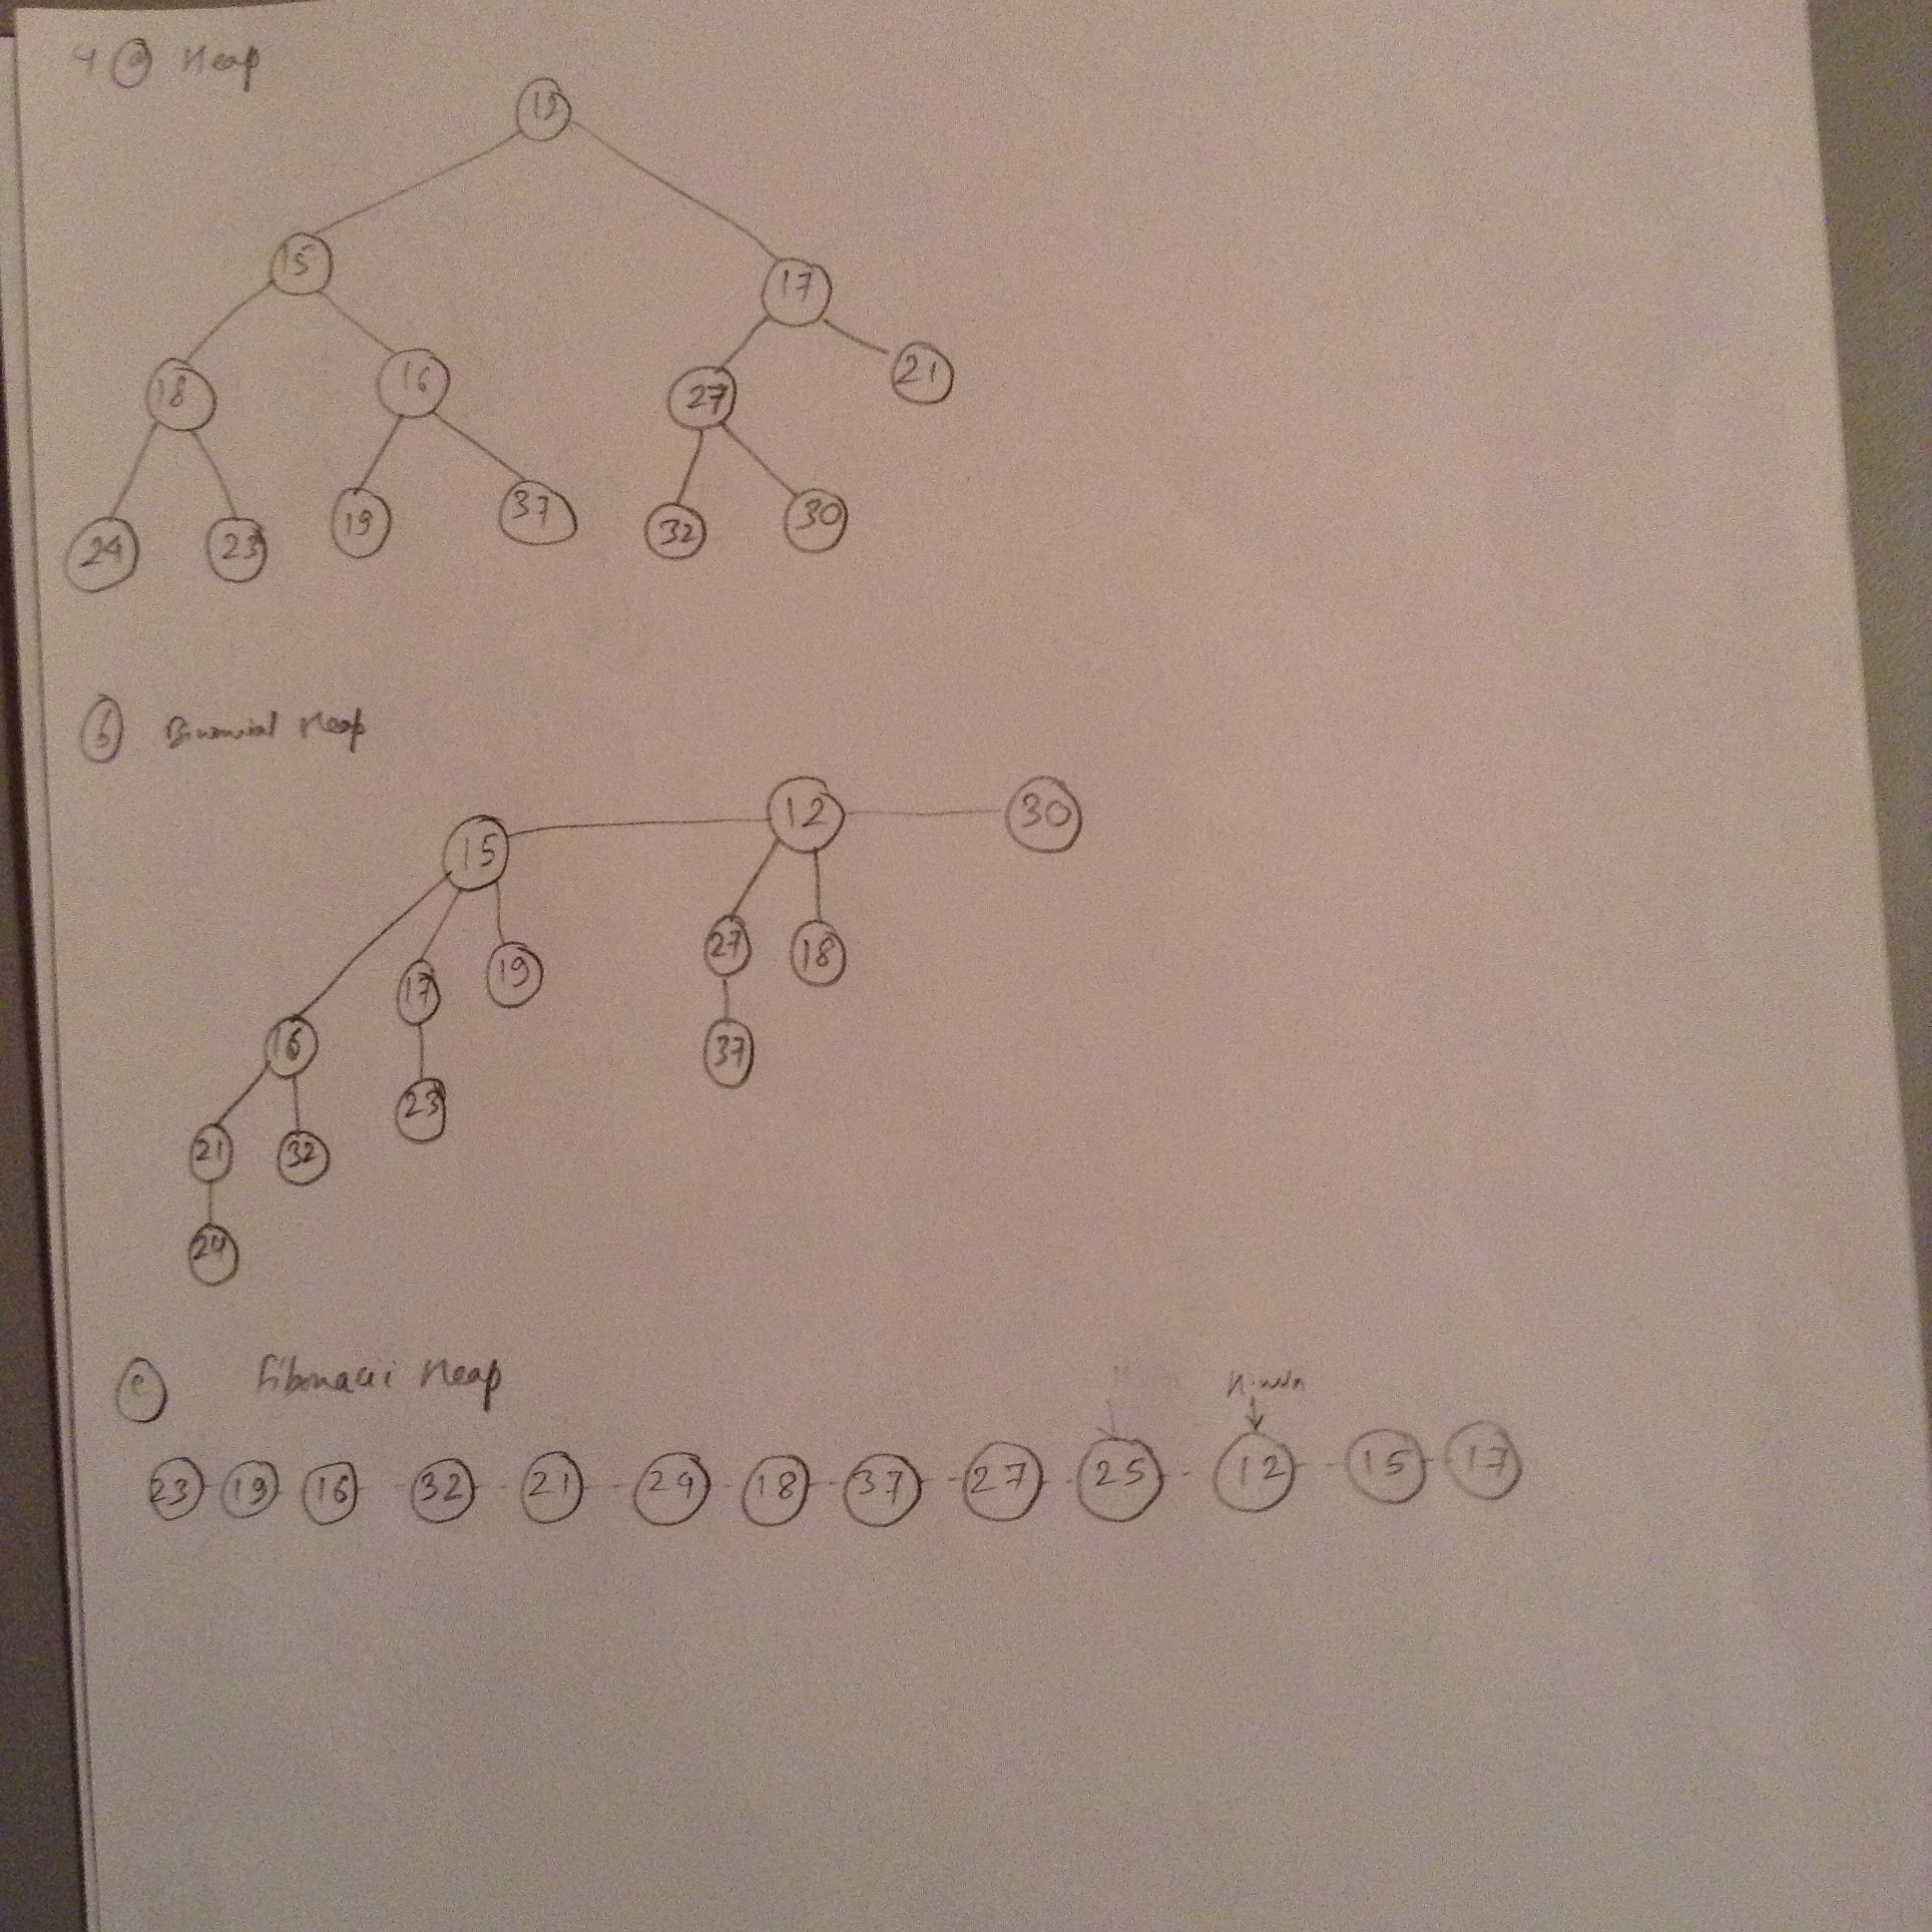 4 a Heap
12
15 17
18 16 27 21
24 23 19 37 32 30
b Binomial Heap
15 12 30
27 18
17 19
16 37
23
21 32
24
c Fibonacci Heap H.min
23 19 16 32 21 24 18 37 27 25 12 15 17